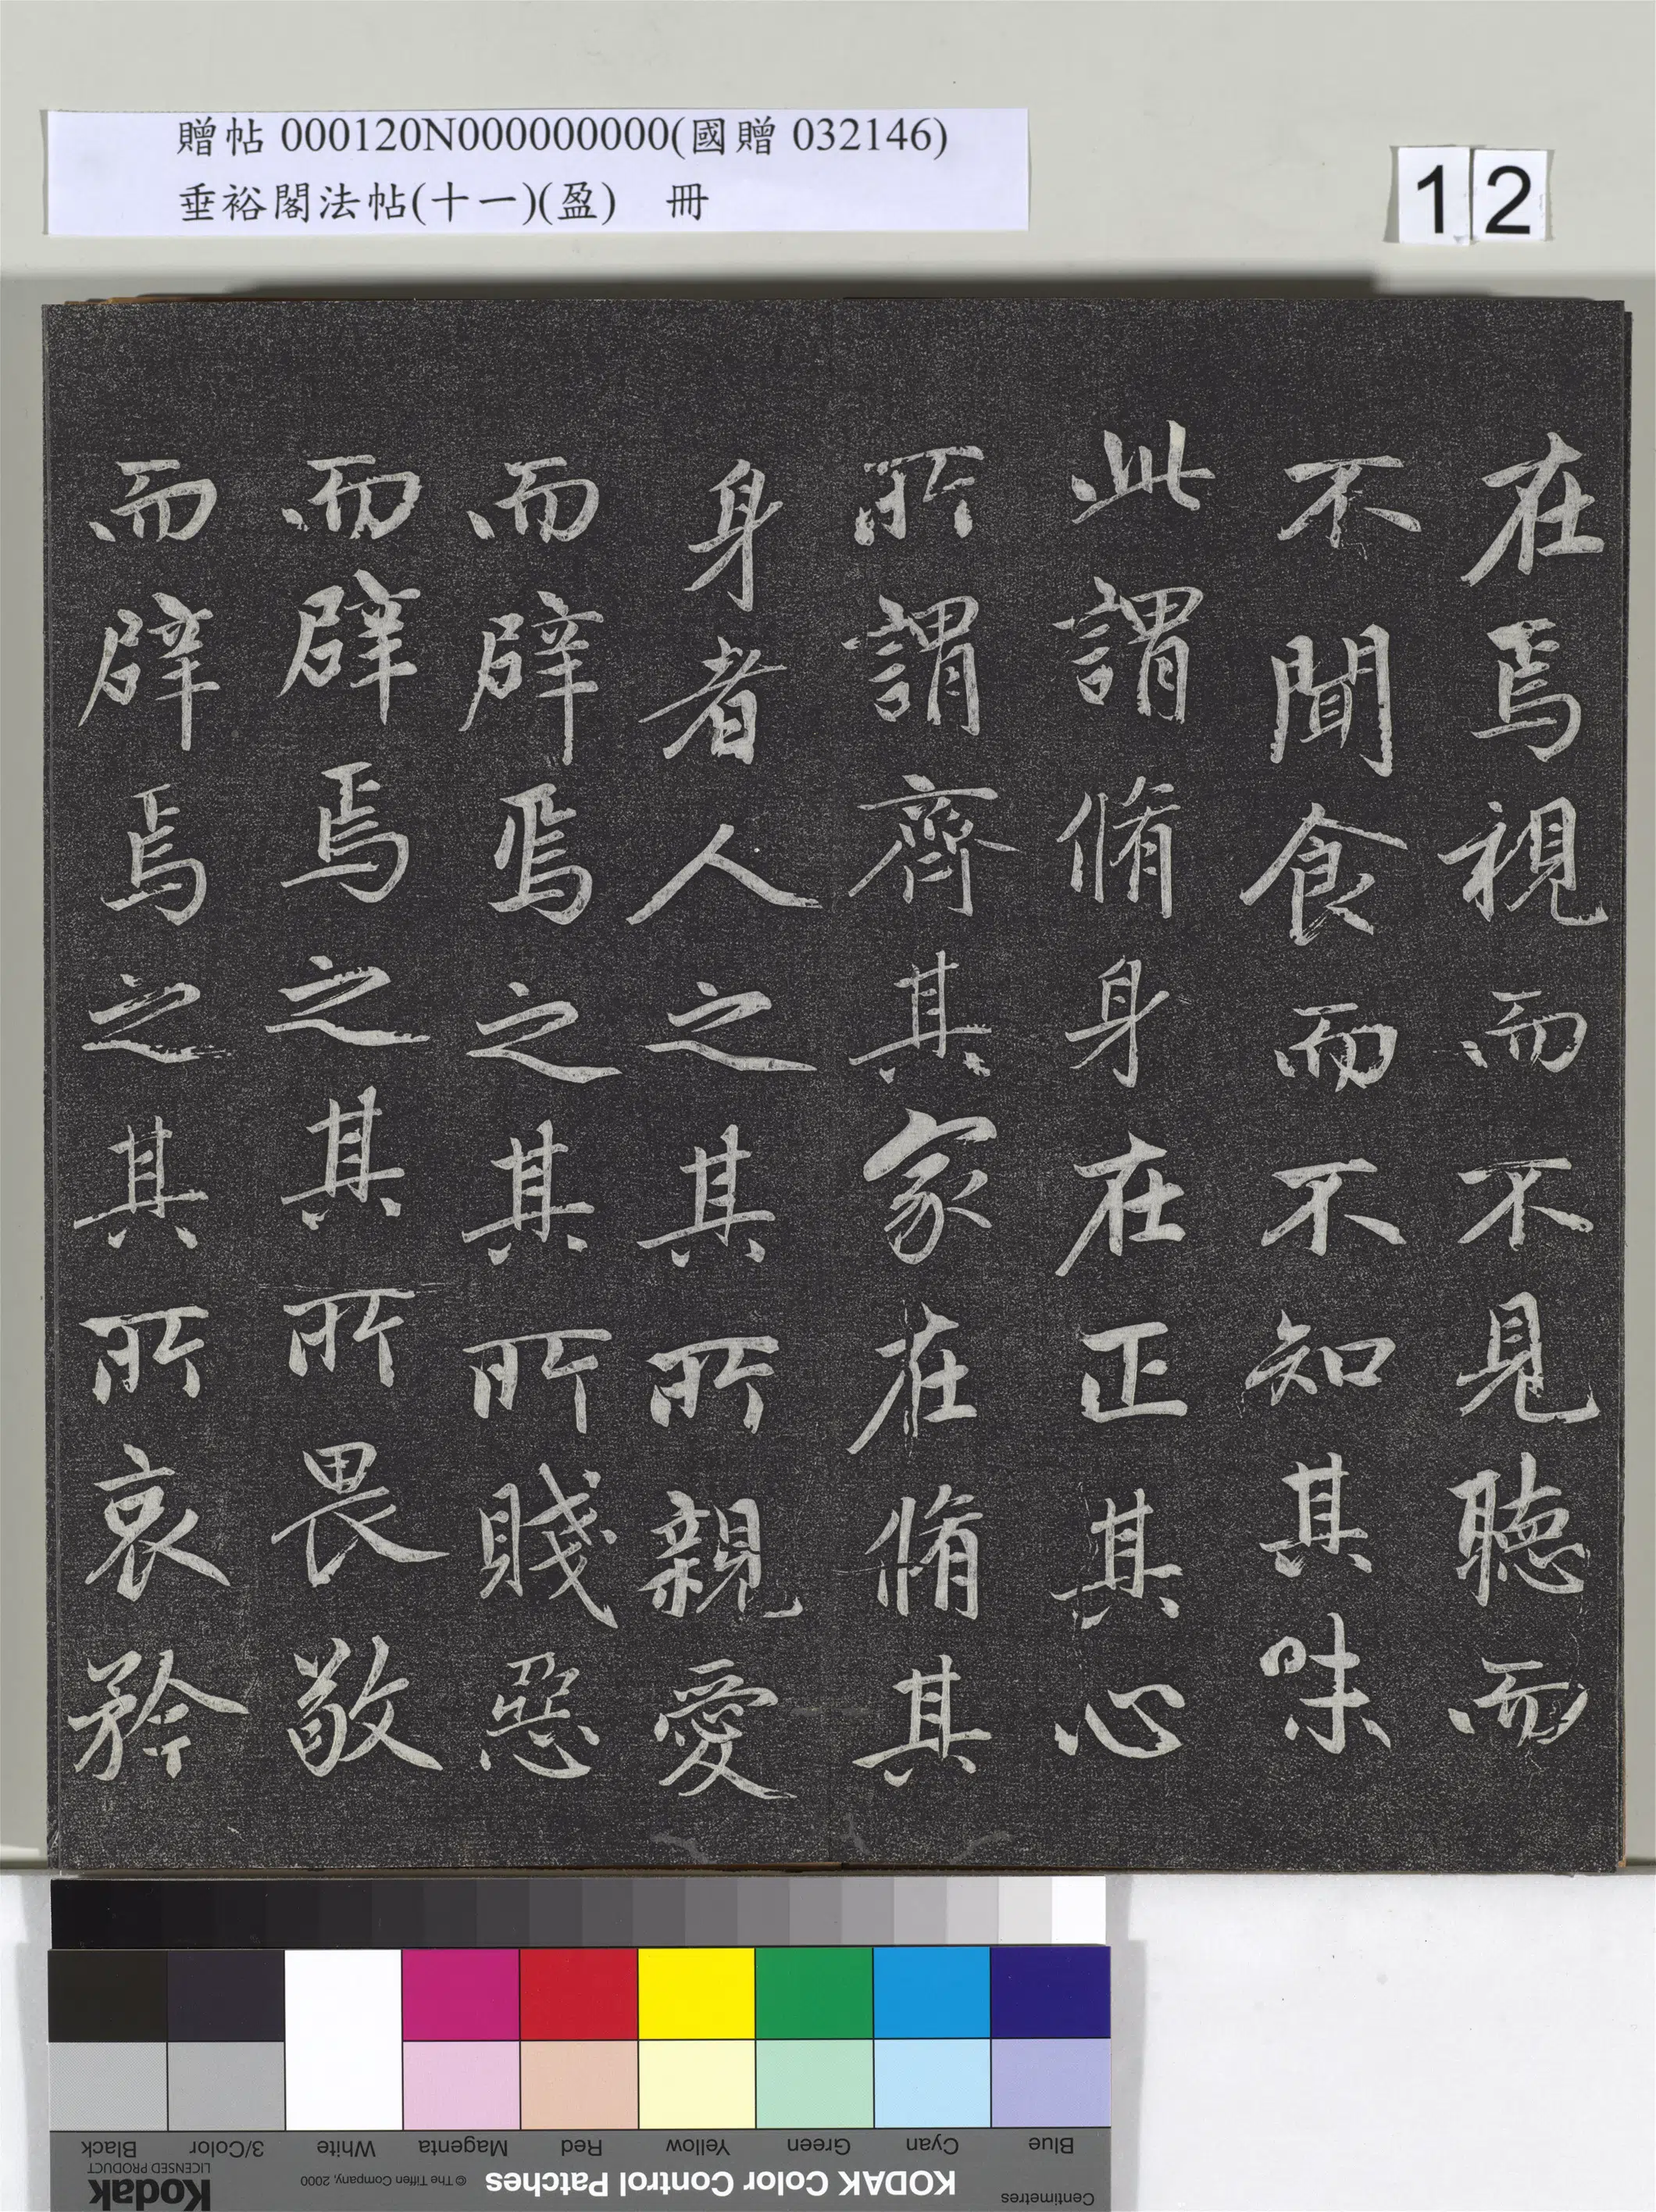 贈帖 000120N000000000(國贈 032146)
垂裕閣法帖(十一)(盈) 冊
12
在焉視而不見聽而
不聞食而不知其味
此謂脩身在正其心
所謂齊其家在脩其
身者人之其所親愛
而辟焉之其所賤惡
而辟焉之其所畏敬
而辟焉之其所哀矜
Blue
Cyan
Green
Yellow
Red
Magenta
White
3/Color
Black
Centimetres
KODAK Color Control Patches
© The Tiffen Company, 2000
Kodak
LICENSED PRODUCT